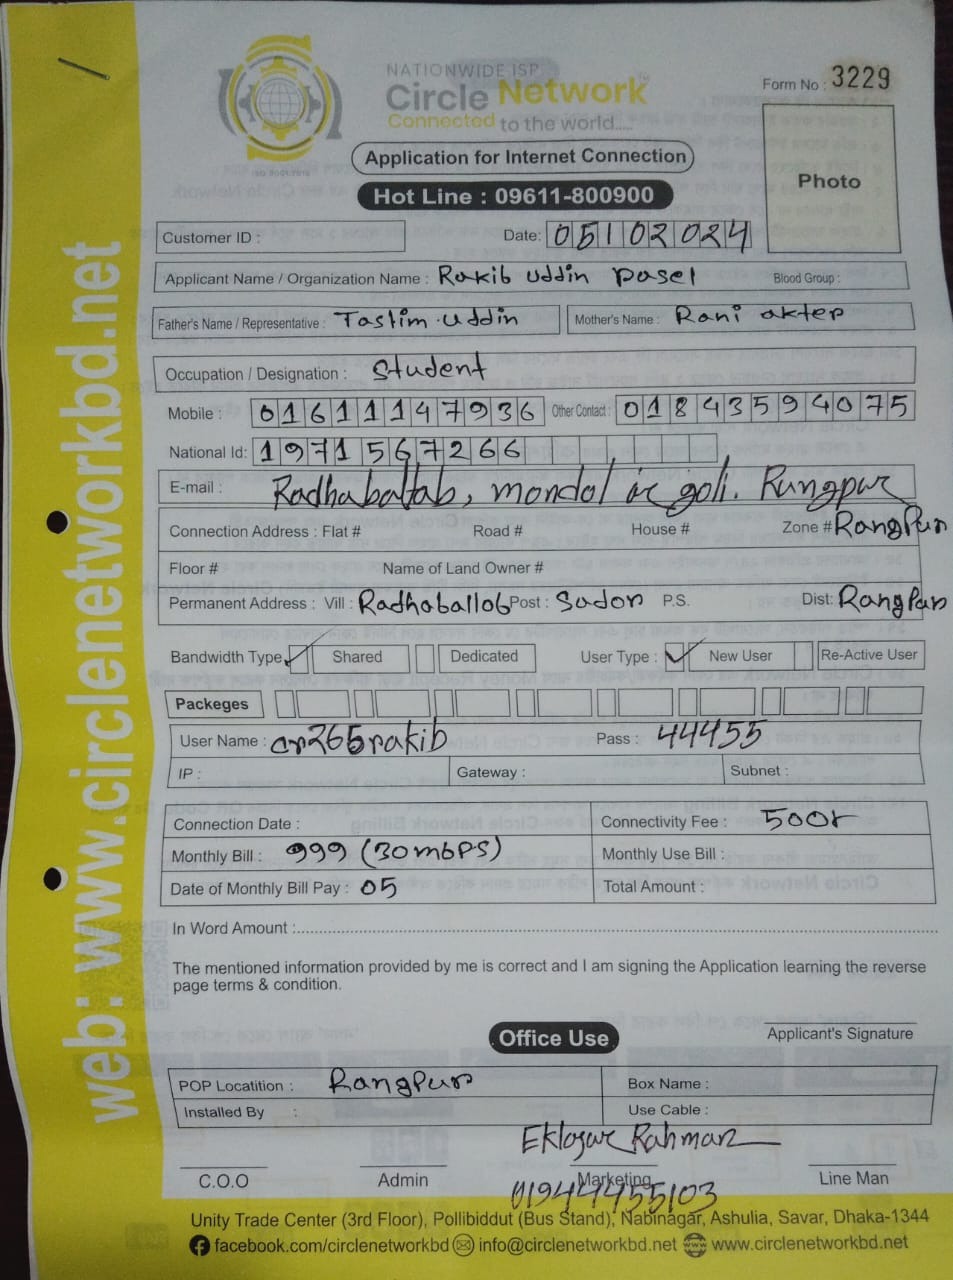 NATIONWIDE ISP
Circle Network
Connected to the world.....
ISO 9001:2015
Form No : 3229
Photo
Application for Internet Connection
Hot Line : 09611-800900
Customer ID :
Date: 05102024
Applicant Name / Organization Name : Rakib uddin Rasel Blood Group :
Father's Name / Representative : Taslim uddin Mother's Name : Rani akter
Occupation / Designation : Student
Mobile : 01611147936 Other Contact : 01843594075
National Id: 1971567266
E-mail : Radhaballab, mondol ir goli. Rangpur
Connection Address : Flat # Road # House # Zone # Rangpur
Floor # Name of Land Owner #
Permanent Address : Vill : Radhaballob Post : Sador P.S. Dist: Rangpur
Bandwidth Type ✓ Shared Dedicated User Type : ✓ New User Re-Active User
Packeges
User Name : cr265rakib Pass : 44455
IP : Gateway : Subnet :
Connection Date : Connectivity Fee : 500৳
Monthly Bill : 999 (30mbps) Monthly Use Bill :
Date of Monthly Bill Pay : 05 Total Amount :
In Word Amount :
The mentioned information provided by me is correct and I am signing the Application learning the reverse
page terms & condition.
Applicant's Signature
Office Use
POP Locatition : Rangpur Box Name :
Installed By : Use Cable :
Rahman
C.O.O Admin Marketing Line Man
01944455103
Unity Trade Center (3rd Floor), Pollibiddut (Bus Stand), Nabinagar, Ashulia, Savar, Dhaka-1344
facebook.com/circlenetworkbd info@circlenetworkbd.net www.circlenetworkbd.net
web: www.circlenetworkbd.net